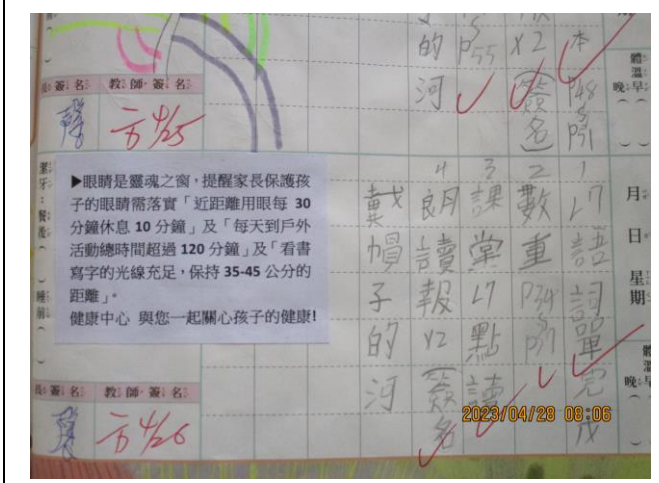 本 P48 P51
X2 簽名
P55
的河
體溫
早
晚
簽名
教師簽名
方 4/25
潔牙：餐後
睡前
▶眼睛是靈魂之窗，提醒家長保護孩
子的眼睛需落實「近距離用眼每 30
分鐘休息 10 分鐘」及「每天到戶外
活動總時間超過 120 分鐘」及「看書
寫字的光線充足，保持 35-45 公分的
距離」。
健康中心 與您一起關心孩子的健康!
月 日 星期
1 L7 語詞單完成
2 數重 P34 P37
3 課堂 L7 點讀
4 朗讀報 X2 簽名
戴帽子的河
體溫
早
晚
簽名
教師簽名
方 4/26
2023/04/28 08:06